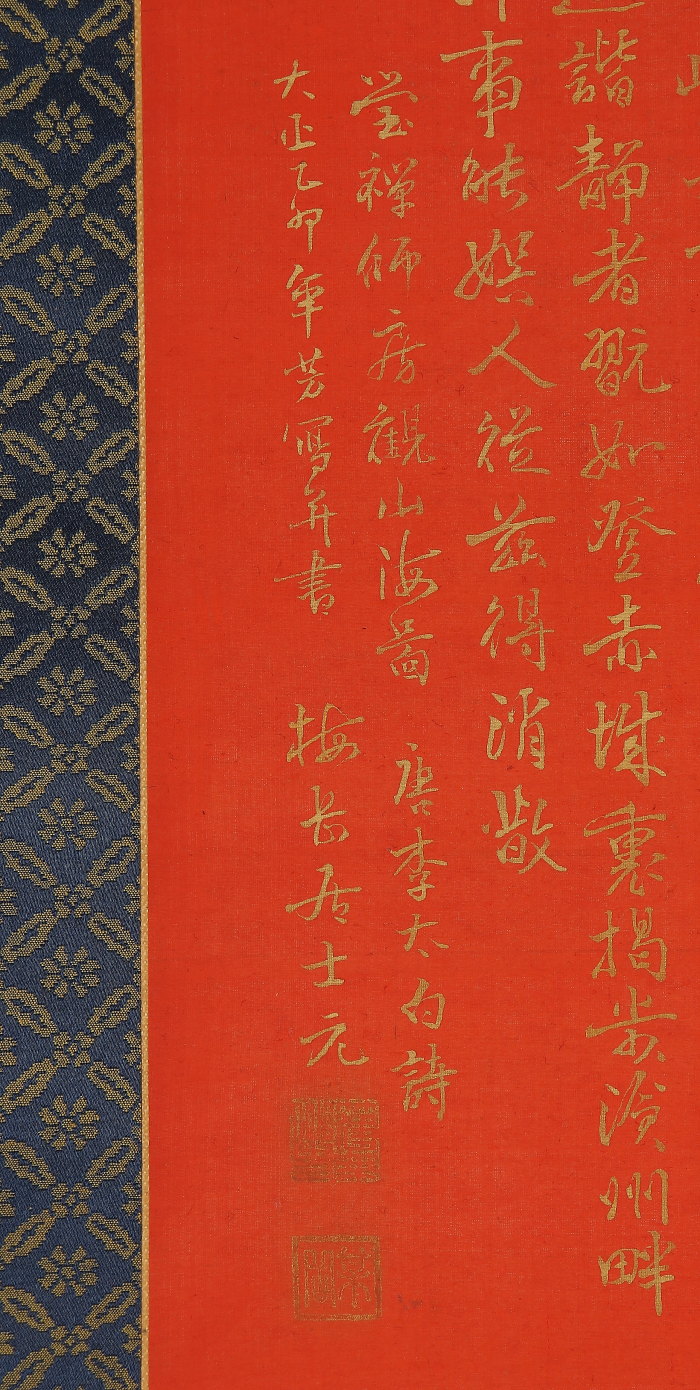 諧靜者翫如登赤城裏揭步滄州畔
事能娯人從茲得消散
瑩禪師房觀山海圖 唐李太白詩
大正乙卯年芳寫并書 梅居士元